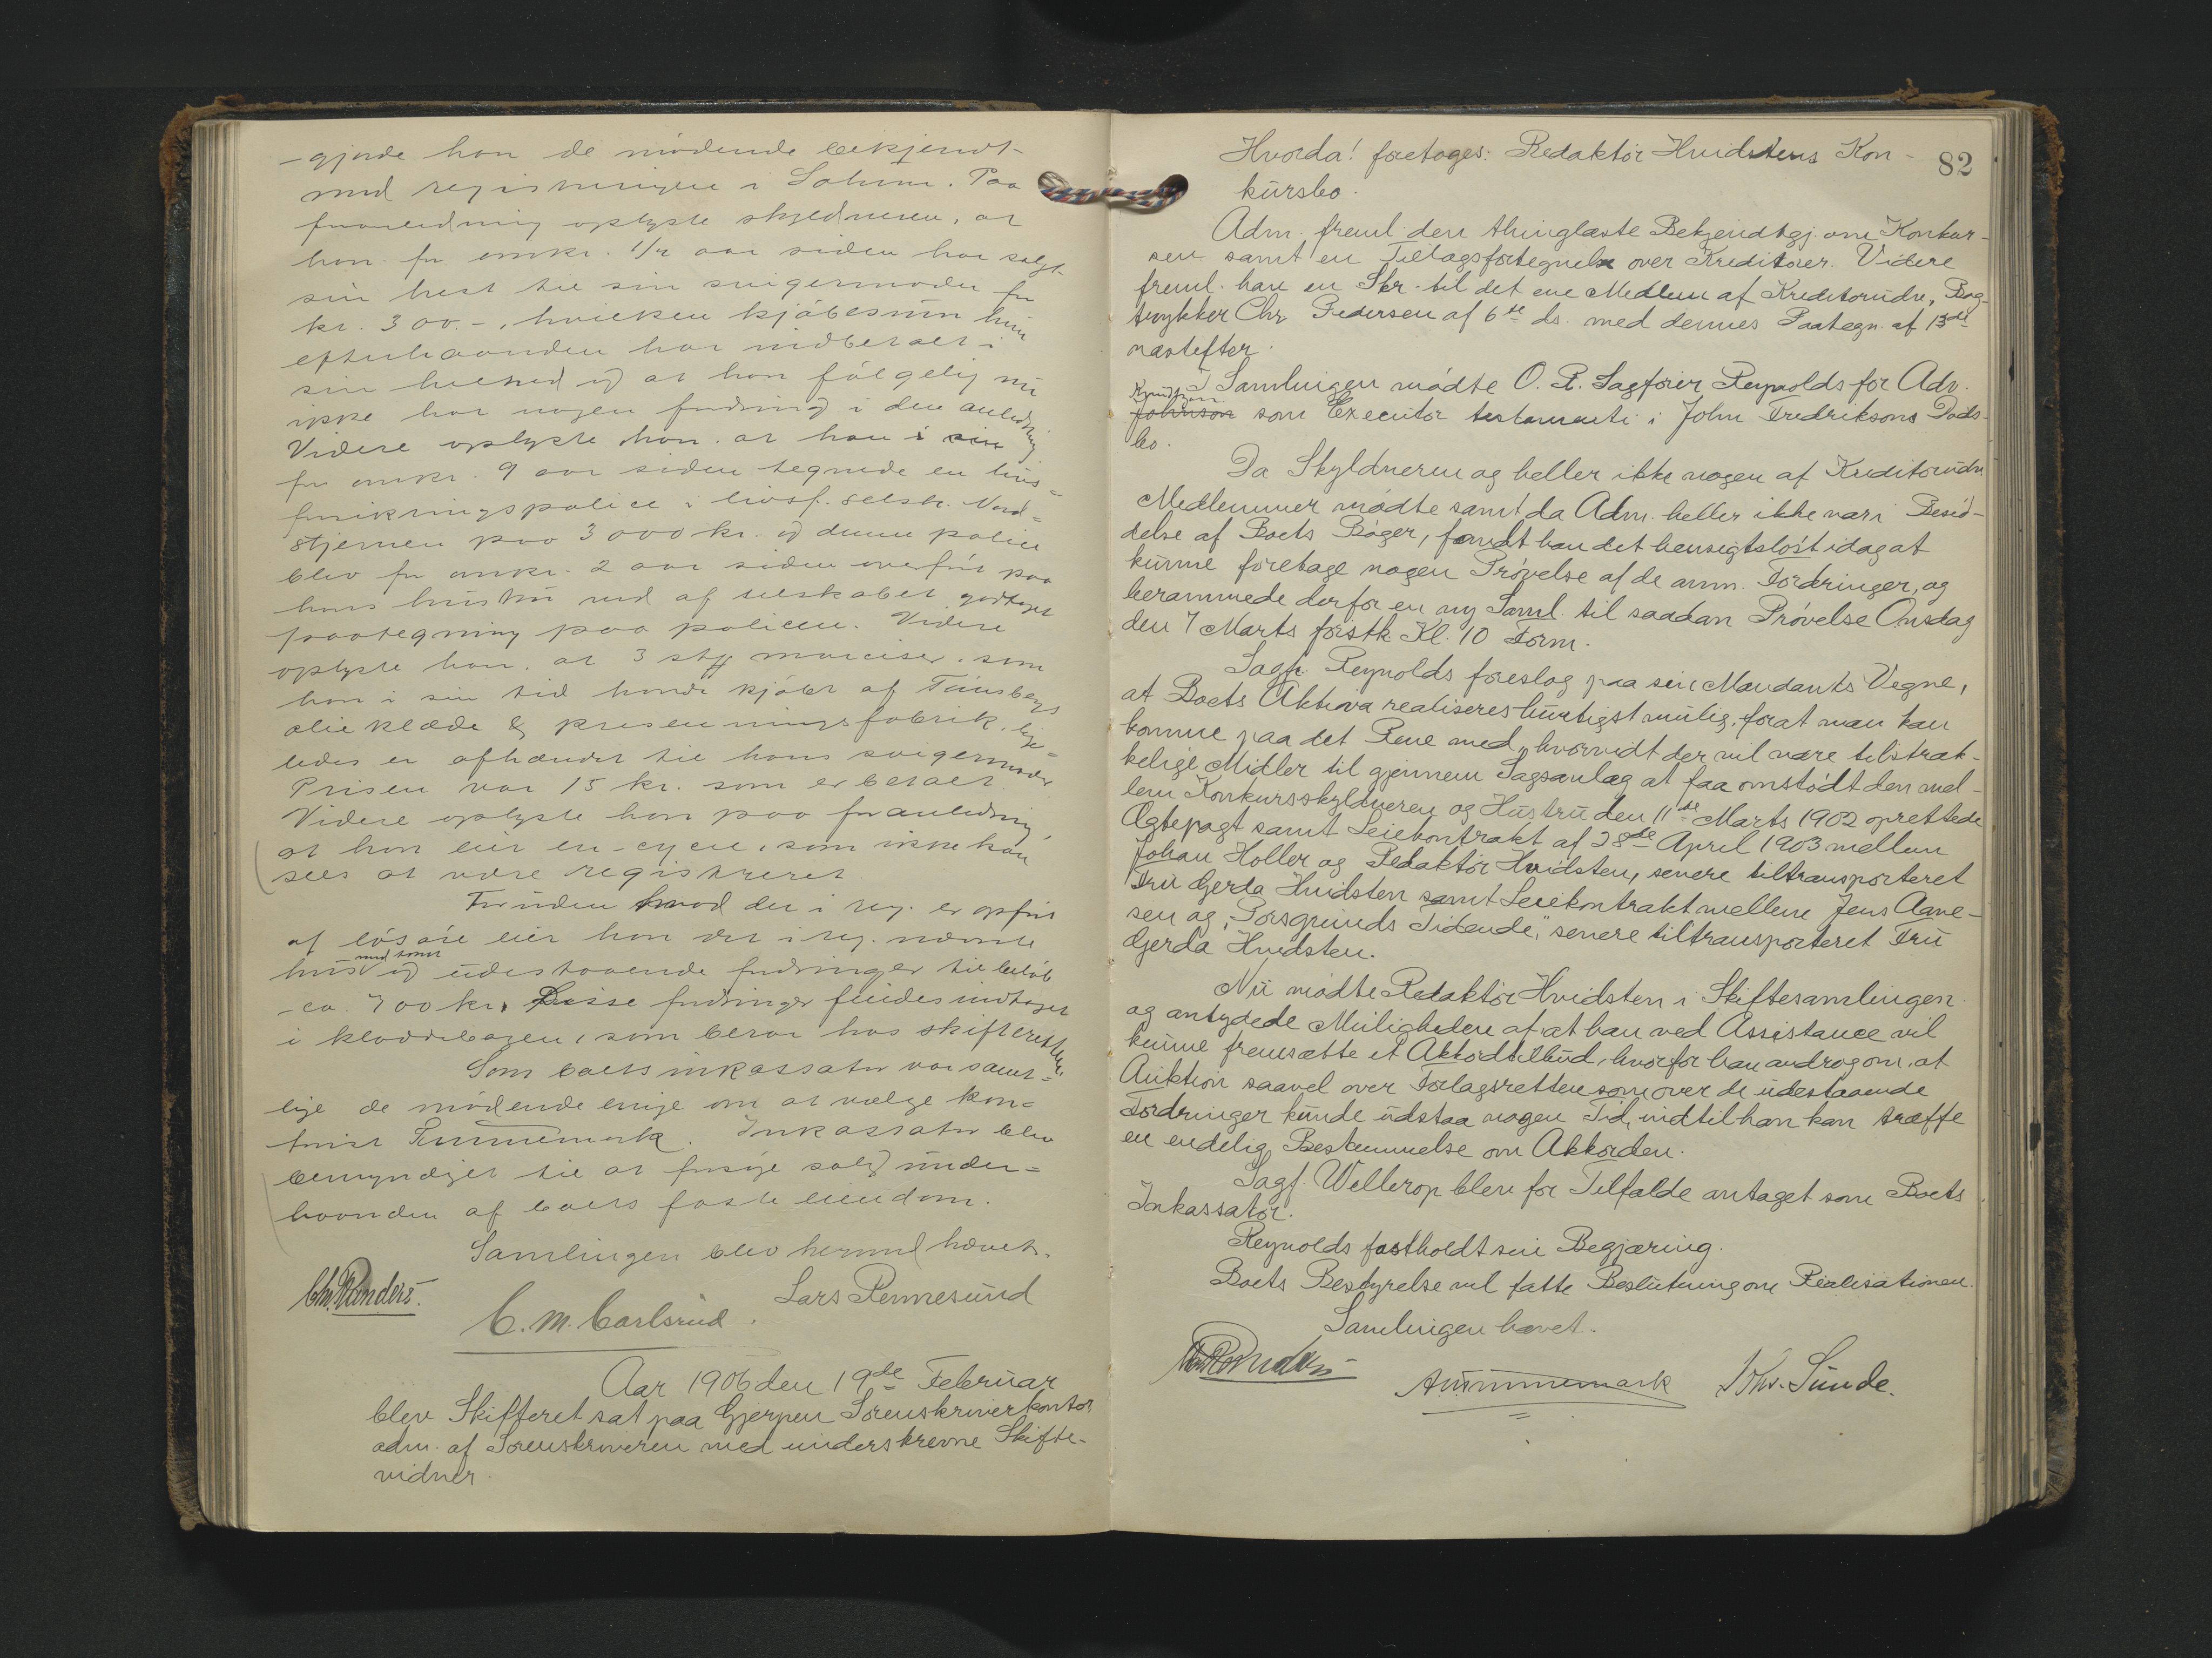 - gjorde han de mødende bekjendt
med registreringen i Solum. Paa
foranledning oplyste skyldneren, at
han for omkr. 1/2 aar siden har solgt
sin hest til sin svigermoder for
kr. 300.-, hvilken kjøbesum hun
efterhaanden har indbetalt i
sin helhed og at han følgelig nu
ikke har nogen fordring i den anledning
Videre oplyste han, at han i sin
for omkr. 9 aar siden tegnede en livs=
forsikringspolice i livsf. selsk. Nord=
stjernen paa 3000 kr. og denne police
blev for omkr. 2 aar siden overført paa
hans hustru ved af selskabet godtaget
paategning paa policen. Videre
oplyste han, at 3 stkr som
han i sin tid havde kjøbt af Tønsbergs
olieklæde & presenningsfabrik, lige=
ledes er afhændet til hans svigermoder
Prisen var 15 kr. som er betalt
Videre oplyste han paa foranledning,
at han eier en cycle, som ikke kan
sees at være registreret.
Foruden hvad der i reg. er opført
af løsøre eier han det i reg. nævnte
hus med tomt og udestaaende fordringer til beløb
ca. 700 kr. Disse fordringer findes indtaget
i kladdebogen, som beror hos skifteretten.
Som boets inkassator var samt=
lige de mødende enige om at vælge kon=
torist Tummemark. Inkassator blev
bemyndiget til at forsøge salg under=
haanden af boets faste eiendom.
Samlingen blev hermed hævet.
Chr. Randers.
C. M. Carlsrud.
Lars Rennesund
Aar 1906 den 19de Februar
blev Skifteret sat paa Gjerpen Sorenskriverkontor
adm. af Sorenskriveren med underskrevne Skifte-
vidner.
82
Hvorda! foretoges: Redaktør Hvidstens Kon-
kursbo.
Adm. freml. den thinglæste Bekjendtgj. om Konkur-
sen samt en Tillægsfortegnelse over Kreditorer. Videre
freml. han en Skr. til det ene Medlem af Kreditorudv., Bog-
trykker Chr. Pedersen af 6te ds. med dennes Paategn. af 13de
næstefter.
I Samlingen mødte O. R. Sagfører Reynolds for Adv.
Knudtzon
Johnson som Executor testamenti i John Fredriksons Døds-
bo.
Da Skyldneren og heller ikke nogen af Kreditorudv.
Medlemmer mødte samt da Adm. heller ikke var i Besid-
delse af Boets Bøger, fandt han det hensigtsløst idag at
kunne foretage nogen Prøvelse af de anm. Fordringer, og
berammede derfor en ny Saml. til saadan Prøvelse Onsdag
den 7 Marts førstk. Kl. 10 Form.
Sagf. Reynolds foreslog paa sin Mandants Vegne,
at Boets Aktiva realiseres hurtigst mulig, forat man kan
komme paa det Rene med, hvorvidt der vil være tilstræk-
kelige Midler til gjennem Sagsanlæg at faa omstødt den mel-
lem Konkursskyldneren og Hustru den 11te Marts 1902 oprettede
Ægtepagt samt Leiekontrakt af 28de April 1903 mellem
Johan Holler og Redaktør Hvidsten, senere tiltransporteret
Fru Gerda Hvidsten samt Leiekontrakt mellem Jens Aane-
sen og „Porsgrunds Tidende”, senere tiltransporteret Fru
Gerda Hvidsten.
Nu mødte Redaktør Hvidsten i Skiftesamlingen
og antydede Muligheden af, at han ved Assistance vil
kunne fremsætte et Akkordtilbud, hvorfor han androg om, at
Auktion saavel over Forlagsretten som over de udestaaende
Fordringer kunde udstaa nogen Tid, indtil han kan træffe
en endelig Bestemmelse om Akkorden.
Sagf. Wellerop blev for Tilfælde antaget som Boets
Inkassator.
Reynolds fastholdt sin Begjæring.
Boets Bestyrelse vil fatte Beslutning om Realisationen.
Samlingen hævet.
Chr. Randers
ATummemark
Johs. Sunde.